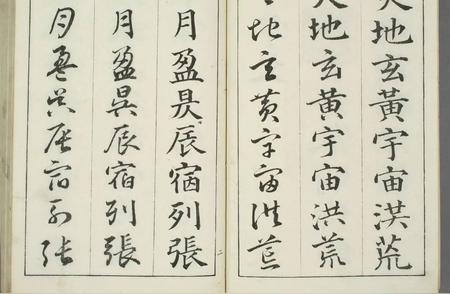 天地玄黃宇宙洪荒
天地玄黃宇宙洪荒
地玄黃宇宙洪荒
月盈昃辰宿列張
月盈昃辰宿列張
月盈昃辰宿列張
二